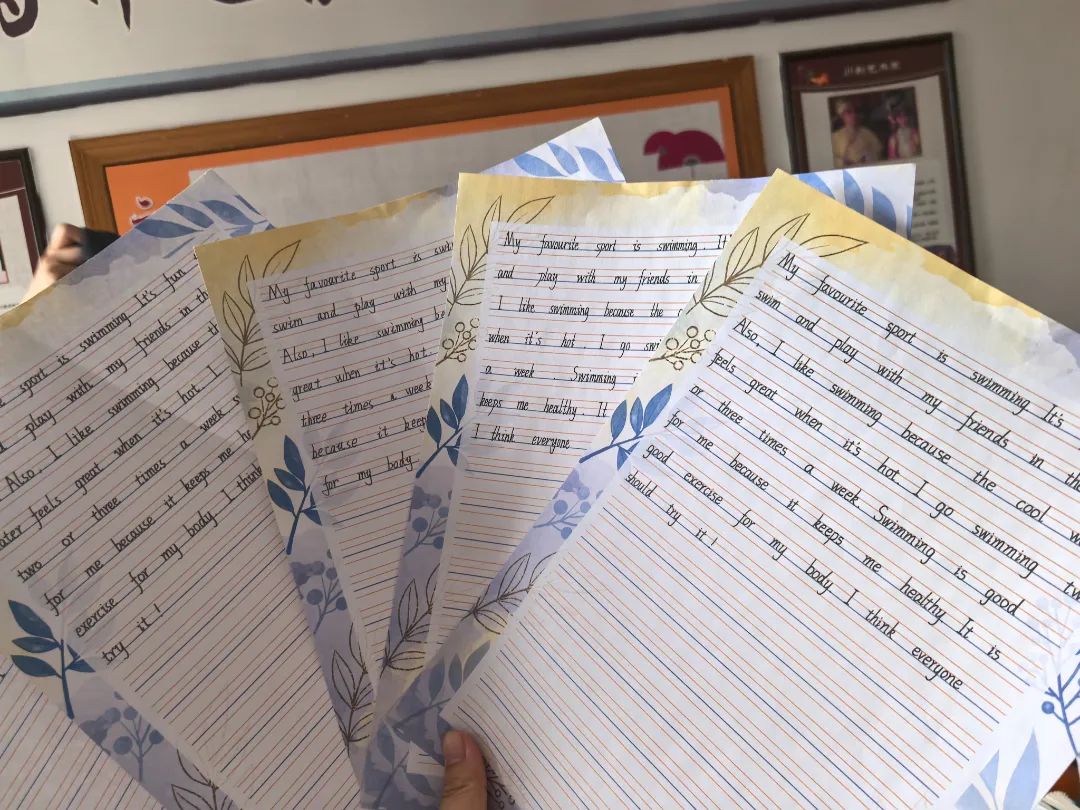 川剧艺术家
sport is swimming It's fun
play with my friends in th
Also, I like swimming because th
ater feels great when it's hot I
two or three times a week S
for me because it keeps me he
exercise for my body I think
try it !
My favourite sport is swi
swim and play with my
Also, I like swimming be
great when it's hot.
three times a week
because it keep
for my body
My favourite sport is swimming. It
and play with my friends in
I like swimming because the c
when it's hot I go swi
a week . Swimming
keeps me healthy It
I think everyone
My favourite sport is swimming It's
swim and play with my friends in the
Also, I like swimming because the cool w
feels great when it's hot I go swimming tw
or three times a week. Swimming is good
for me because it keeps me healthy It is
good exercise for my body I think everyone
should try it !